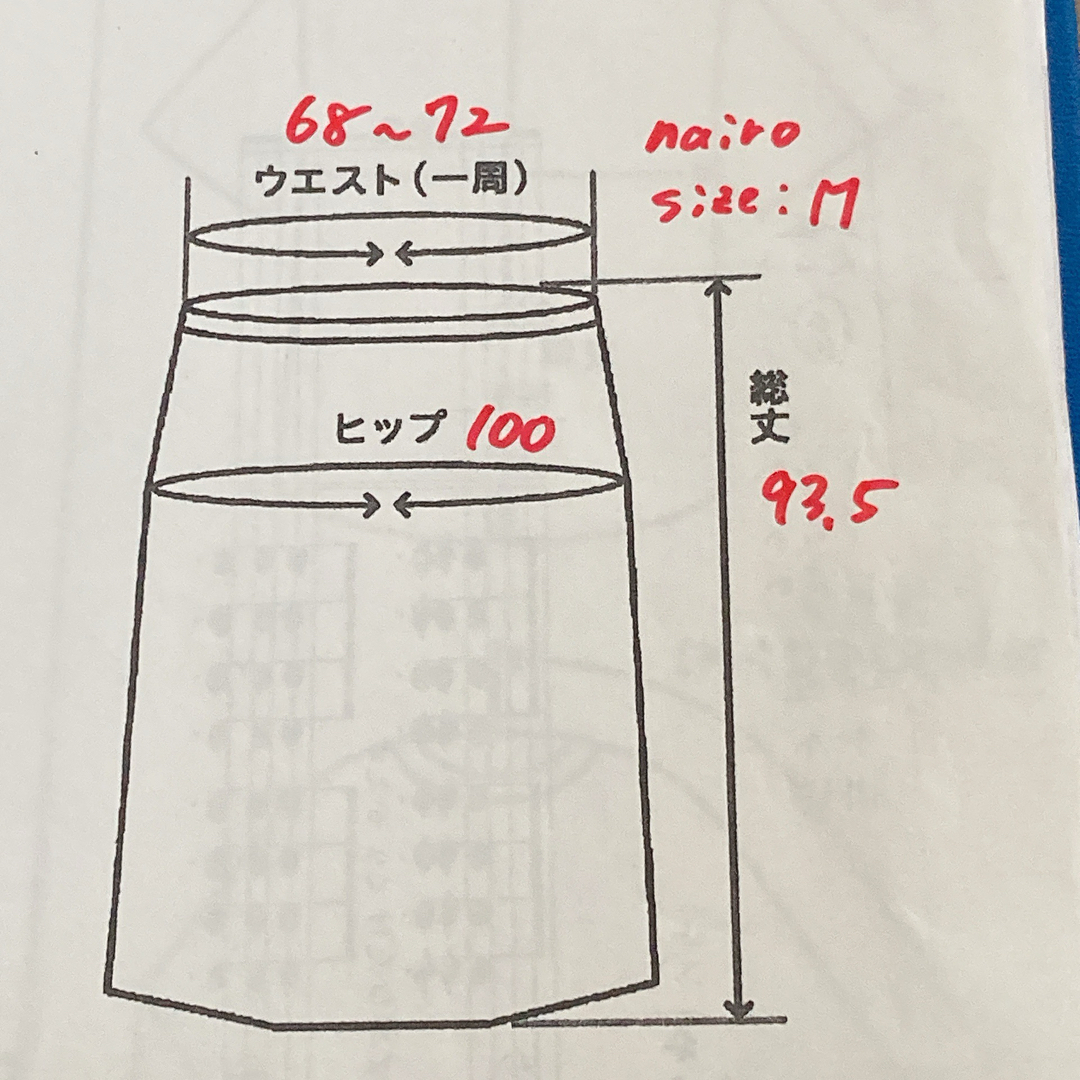 68~72
ウエスト(一周)
nairo
size:M
ヒップ 100
総丈
93.5